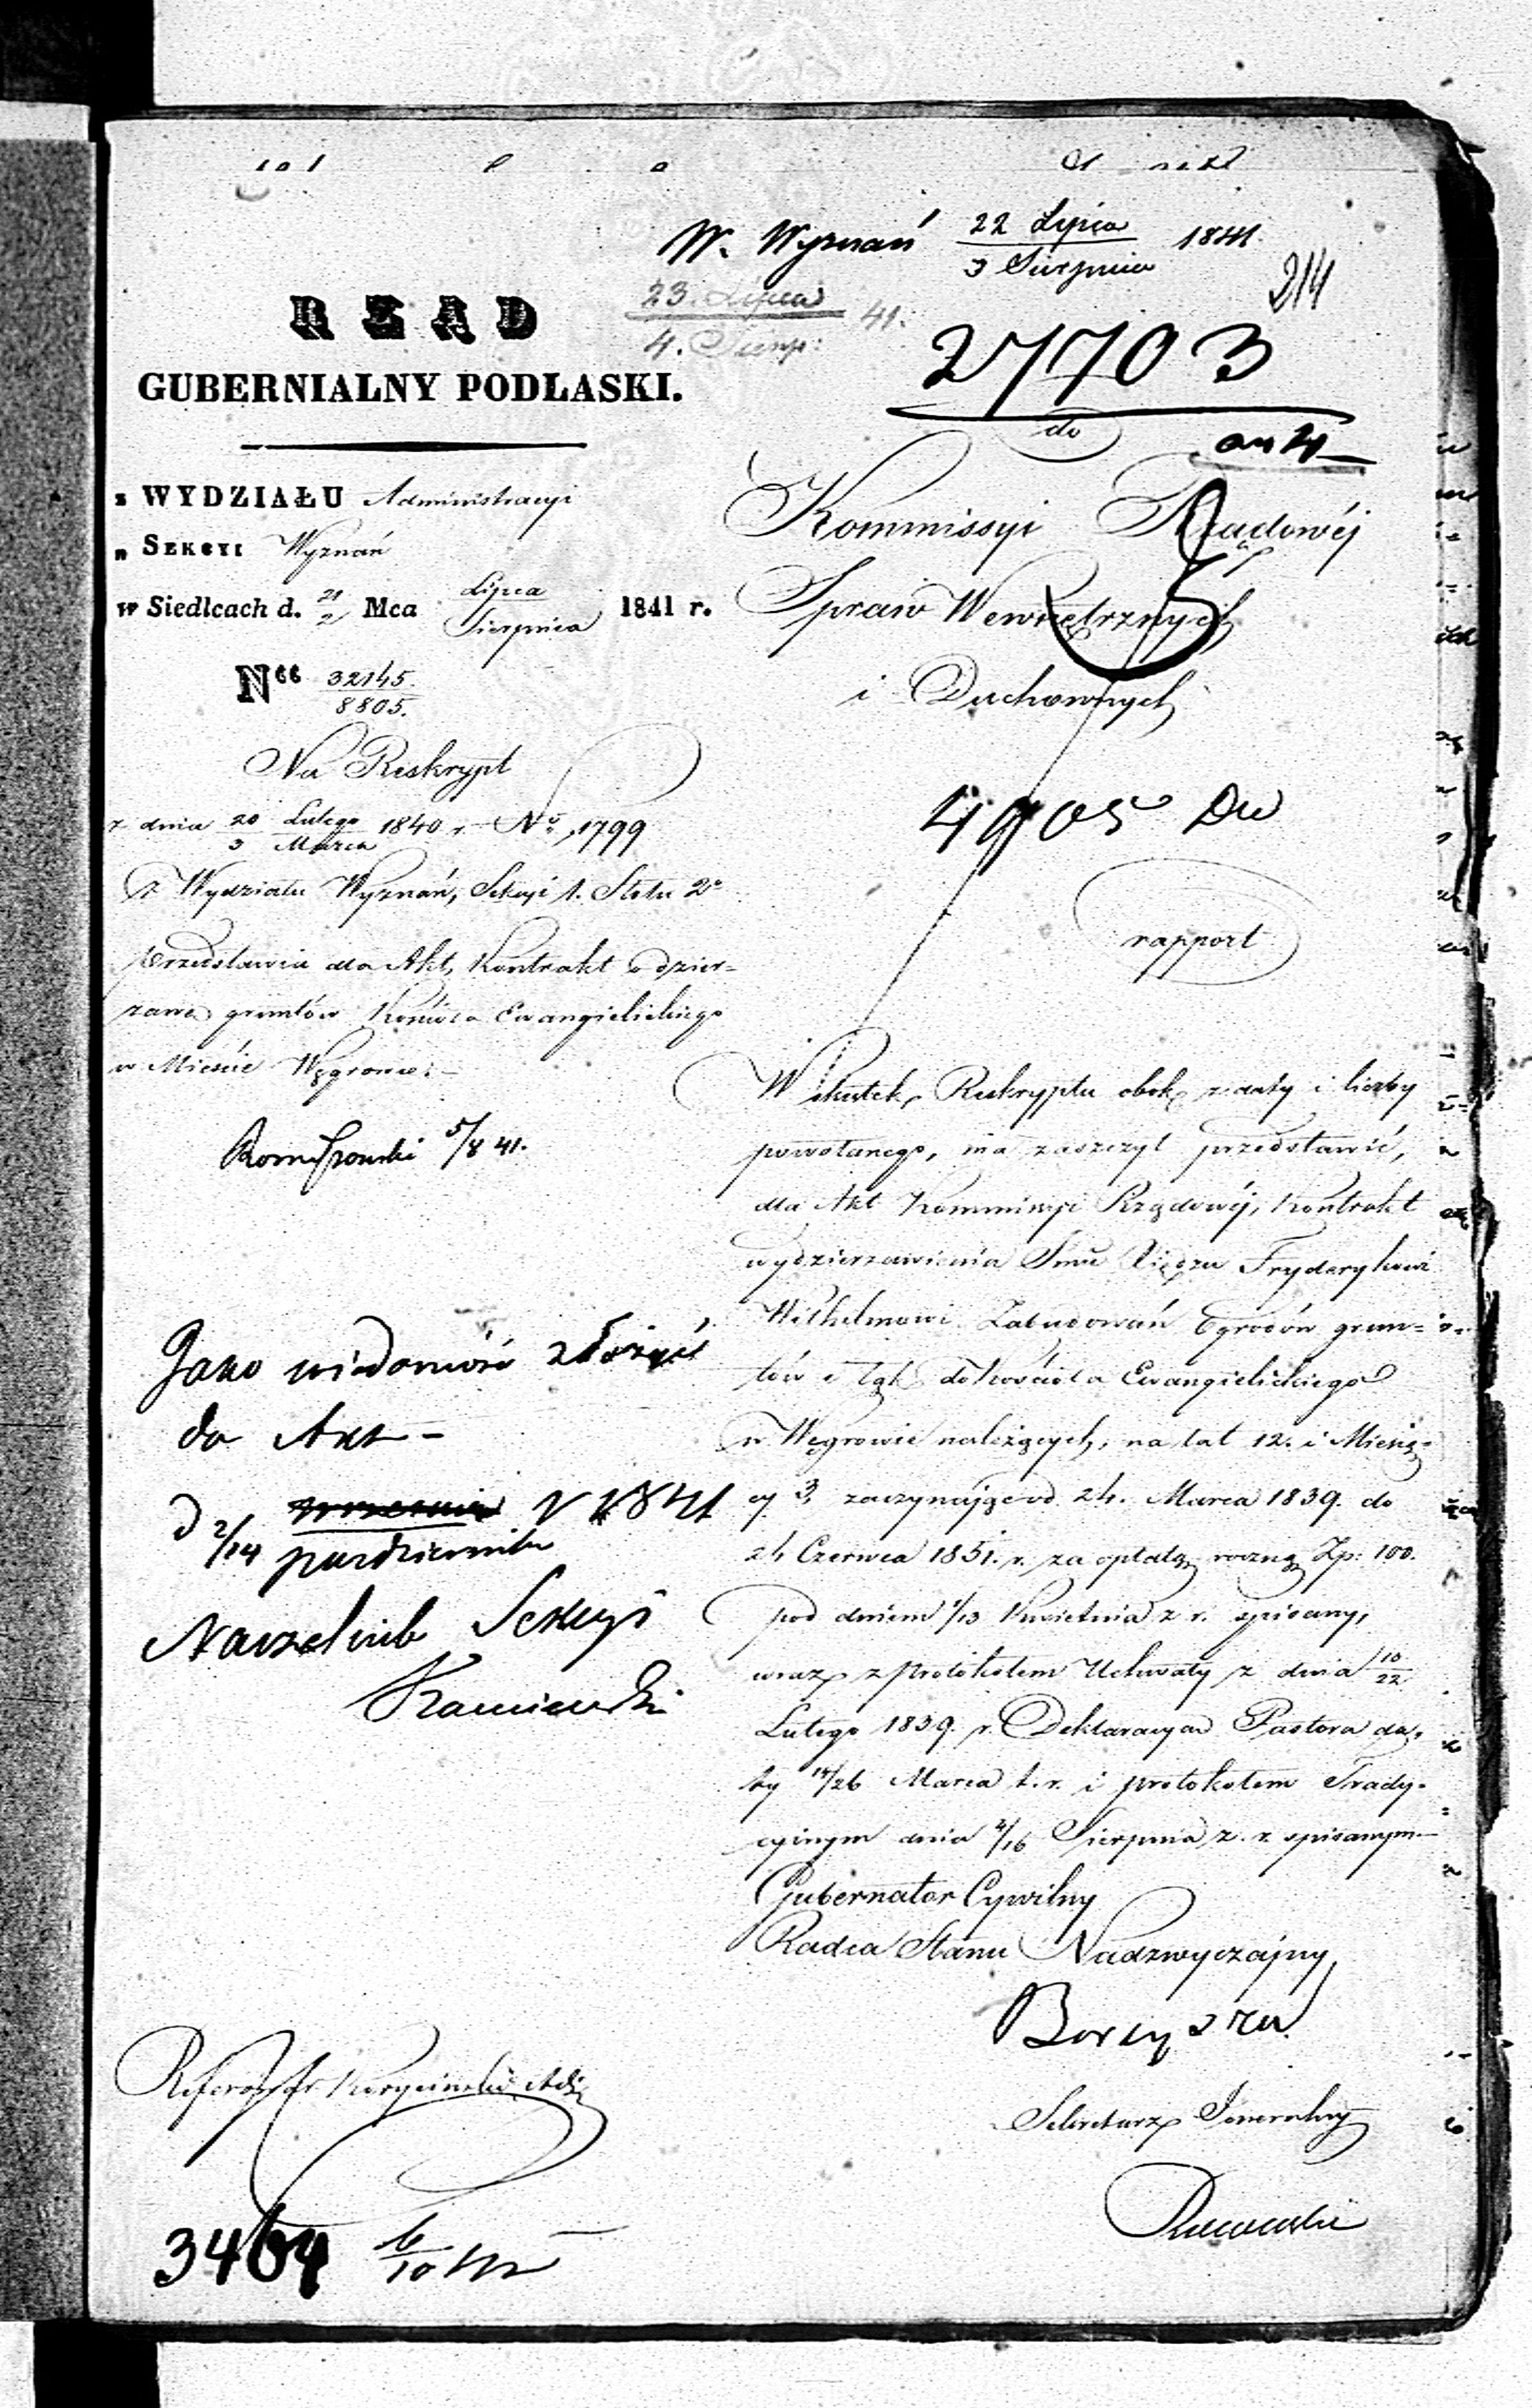 W. Wyznań 22 Lipca / 3 Sierpnia 1841.
214
23. Lipca / 4. Sierp: 41.
27703
RZĄD
GUBERNIALNY PODLASKI.
z WYDZIAŁU Administracyi
„ SEKCYI Wyznań
w Siedlcach d. 21/2 Mca Lipca / Sierpnia 1841 r.
Nro 32145 / 8805.
Na Reskrypt
z dnia 20 Lutego / 3 Marca 1840 r. No 1799
z Wydziału Wyznań, Sekcyi 1. Stołu 2o
przedstawia dla Akt, Kontrakt o dzier=
żawę gruntów Kościoła Ewangielickiego
w Mieście Węgrowie.—
5/8 41.
Jako wiadomość złożyć
do Akt –
d 2/14 września r 1841
października
Naczelnik Sekcyi
Kamiewski
Referował Koryciński Adj.
3464 6/10
do
Kommissyi Rządowéj
Spraw Wewnętrznych
i Duchownych
4905 Dw
rapport
W skutek Reskryptu obok z daty i liczby
powołanego, ma zaszczyt przedstawić,
dla Akt Kommissyi Rządowéj, Kontrakt
wydzierżawienia Xiędzu Fryderykowi
Wilhelmowi Zabudowań Ogrodów grun=
tów i łąk do kościoła Ewangielickiego
w Węgrowie należących, na lat 12. i Miesię=
cy 3, zaczynając od 24. Marca 1839. do
24 Czerwca 1851. r. za opłatą roczną Zp: 100.
pod dniem 1/13 Kwietnia z. r. spisany,
wraz z protokołem Uchwały z dnia 10/22
Lutego 1839. r. Deklaracyą Pastora da=
ty 14/26 Marca t. r. i protokołem Trady=
cyinym dnia 4/16 Sierpnia z. r. spisanym—
Gubernator Cywilny
Radca Stanu Nadzwyczajny
Sekretarz Jeneralny